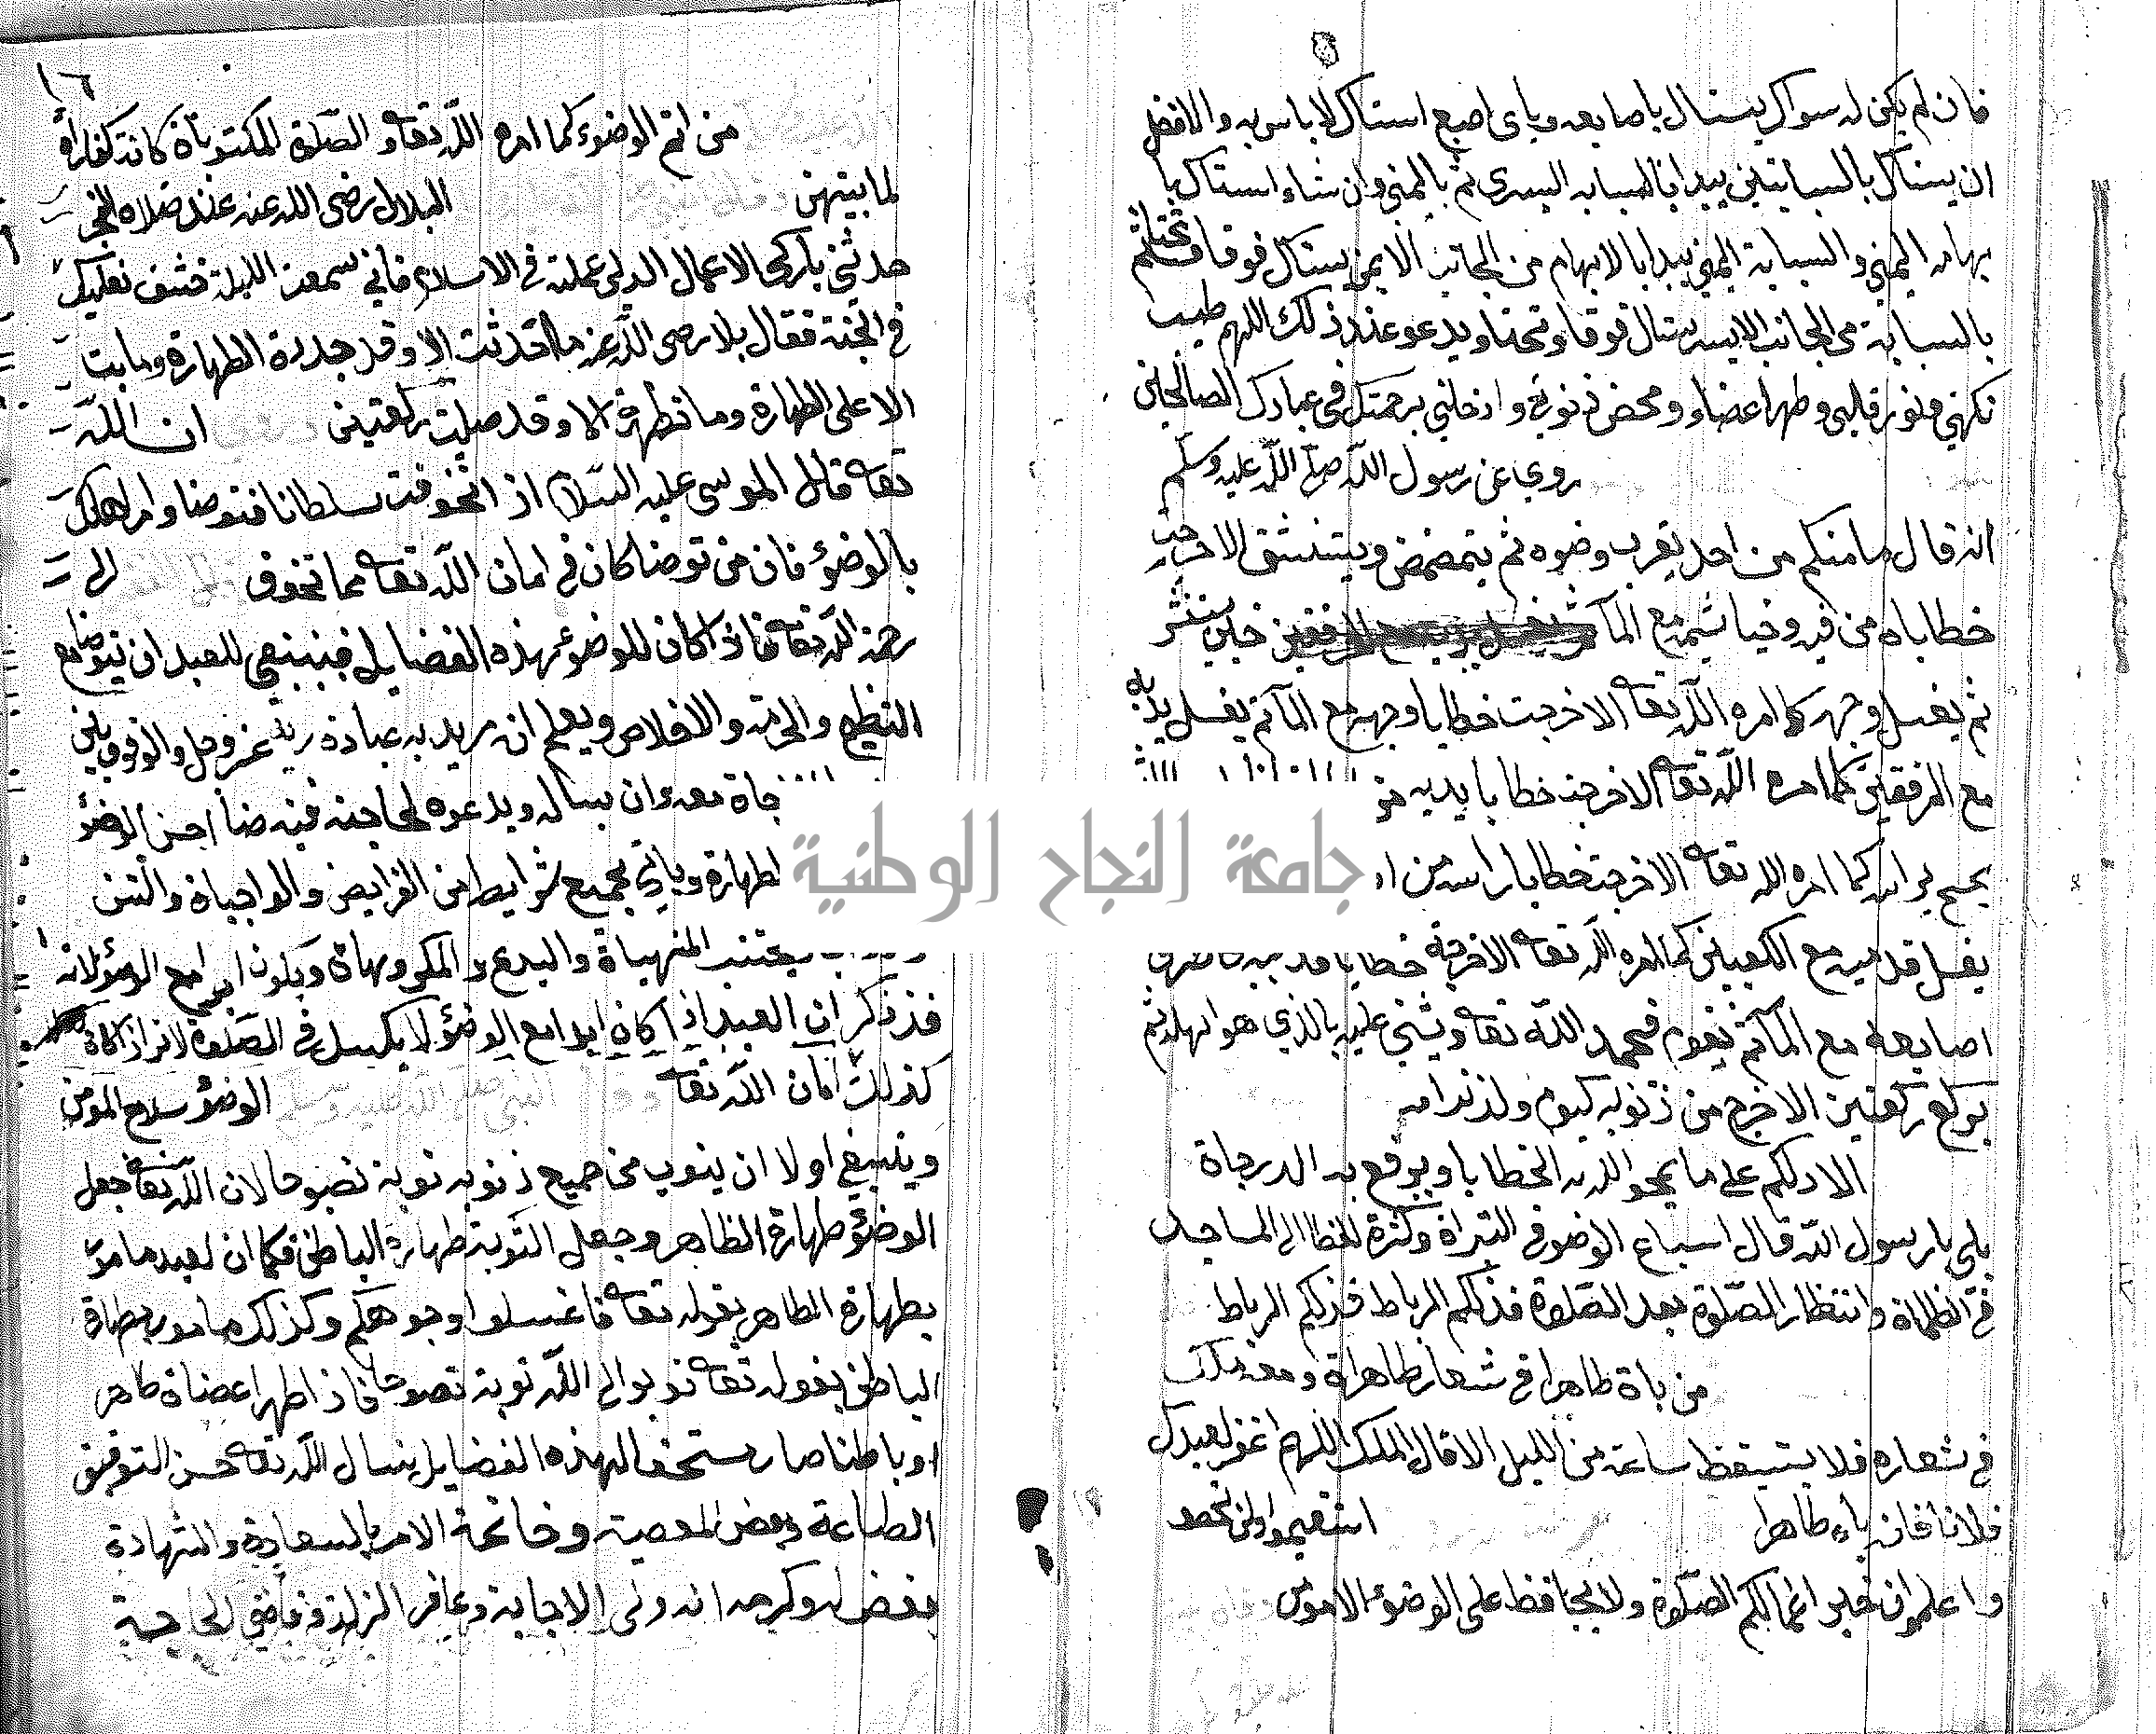 فان لم يكن له سواك يستاك باصابعه وباى اصبع استاك لا باس به والافضل
ان يستاك بالسبابتين يبدا بالسبابه اليسرى ثم باليمنى وان شاء استاك با
بهامه اليمنى والسبابة اليمنى يبدا بالابهام من الجانب الايمن يستاك فوقا وتحتا ثم
بالسبابة من الجانب الايسر يستاك فوقا وتحتا ويدعو عند ذلك اللهم طيب
نكهتي ونور قلبى وطهر اعضاء ومحض ذنوبي وادخلني برحمتك في عبادك الصالحين
روي عن رسول الله صلى الله عليه وسلم
انه قال ما منكم من احد يقرب وضوه ثم يتمضمض ويستنشق الا خرجت
خطاياه من فيه وخياشيمه مع المآ حين ينتثر
ثم يغسل وجهه كما امره الله تعا الا خرجت خطايا وجهه مع المآ ثم يغسل يديه
مع المرفقين كما امره الله تعا الا خرجت خطايا يديه من
يمسح براسه كما امره الله تعا الا خرجت خطايا راسه من ا
يغسل قدميه مع الكعبين كما امره الله تعا الا خرجة خطايا قدميه من اطراف
اصابعه مع المآ ثم يقوم فيحمد الله تعا ويثني عليه بالذي هو اهله ثم
يركع ركعتين الا خرج من ذنوبه كيوم ولدته امه
الا ادلكم على ما يمحو الله به الخطايا ويرفع به الدرجاة
بلى يا رسول الله قال اسباغ الوضو في التبراة وكثرة الخطا الى المساجد
في الظلماة وانتظار الصلوة بعد الصلوة فذلكم الرباط فذلكم الرباط
من باة طاهرا في شعار طاهراة ومعه ملك
في شعاره فلا يستيقظ ساعة من الليل الا قال الملك اللهم اغفر لعبدك
فلانا فانه باة طاهرا استقيموا ولن تحصو
واعلموا ان خير اعمالكم الصلوة ولا يحافظ على الوضوء الا مومن
١٦
من اتم الوضوء كما امره الله تعا والصلوة المكتوباة كانة كفاراة
لما بينهن البلال رضى الله عنه عند صلاه الفجر
حدثني بارجى الاعمال الذى عملته في الاسلام فاني سمعت الليلة خشف نعليك
في الجنة فقال بلا رضى الله عنه ما احدثت الا وقد جددة الطهارة وما بت
الا على الطهارة وما تطهرة الا وقد صليت ركعتين ان الله
تعا قال الموسى عليه السلام اذا تخوفت سلطانا فتوضا وامر اهلك
بالوضؤ فان من توضا كان في امان الله تعا مما تخوف الى
رحمة الله تعا فاذا كان للوضوء بهذه الفضايل فينبغي للعبد ان يتوضا مع
التعظيم والحرمة والاخلاص ويعلم انه يريد به عبادة ربه عز وجل والوقوف بين
جاة معه وان يساله ويدعوه لحاجته فيه ضا احسن الوضؤ
لطهارة وياتي بجميع شرايط من الفرايض والواجباة والسنن
يجتنب المنهياة والبدع والمكروهاة ويكون ابدا مع الوضؤ لانه
قد ذكر ان العبد اذا كان ابدا مع الوضؤ لا يكسل في الصلوة لانه اذا كان
كذلك امان الله تعا الوضؤ سلاح المومن
وينبغي اولا ان يتوب من جميع ذنوبه توبة نصوحا لان الله تعا جعل
الوضؤ طهارة الظاهر وجعل التوبة طهارة الباطن فكما ان لعبد مامور
بطهارة الظاهر بقوله تعا فاغسلوا وجوهكم وكذلك مامور بطهارة
الباطن بقوله تعا توبوا الى الله توبة نصوحا فاذا طهر اعضاة ظاهر
او باطنا صار مستحقا لهذه الفضايل ينسال الله تعا حسن التوفيق
الطاعة وبعض المعصية وخاتمة الامر بالسعادة والشهادة
بفضله وكرمه انه ولى الاجابة وغافر الزلة وقاضي الحاجة
جامعة النجاح الوطنية